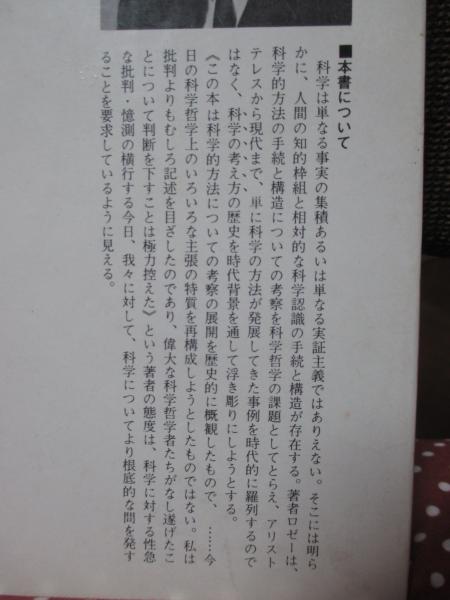 ■本書について
科学は単なる事実の集積あるいは単なる実証主義ではありえない。そこには明ら
かに、人間の知的枠組と相対的な科学認識の手続と構造が存在する。著者ロゼーは、
科学的方法の手続と構造についての考察を科学哲学の課題としてとらえ、アリスト
テレスから現代まで、単に科学の方法が発展してきた事例を時代的に羅列するので
はなく、科学の考え方の歴史を時代背景を通して浮き彫りにしようとする。
《この本は科学的方法についての考察の展開を歴史的に概観したもので、……今
日の科学哲学上のいろいろな主張の特質を再構成しようとしたものではない。私は
批判よりもむしろ記述を目ざしたのであり、偉大な科学哲学者たちがなし遂げたこ
とについて判断を下すことは極力控えた》という著者の態度は、科学に対する性急
な批判・憶測の横行する今日、我々に対して、科学についてより根底的な問を発す
ることを要求しているように見える。